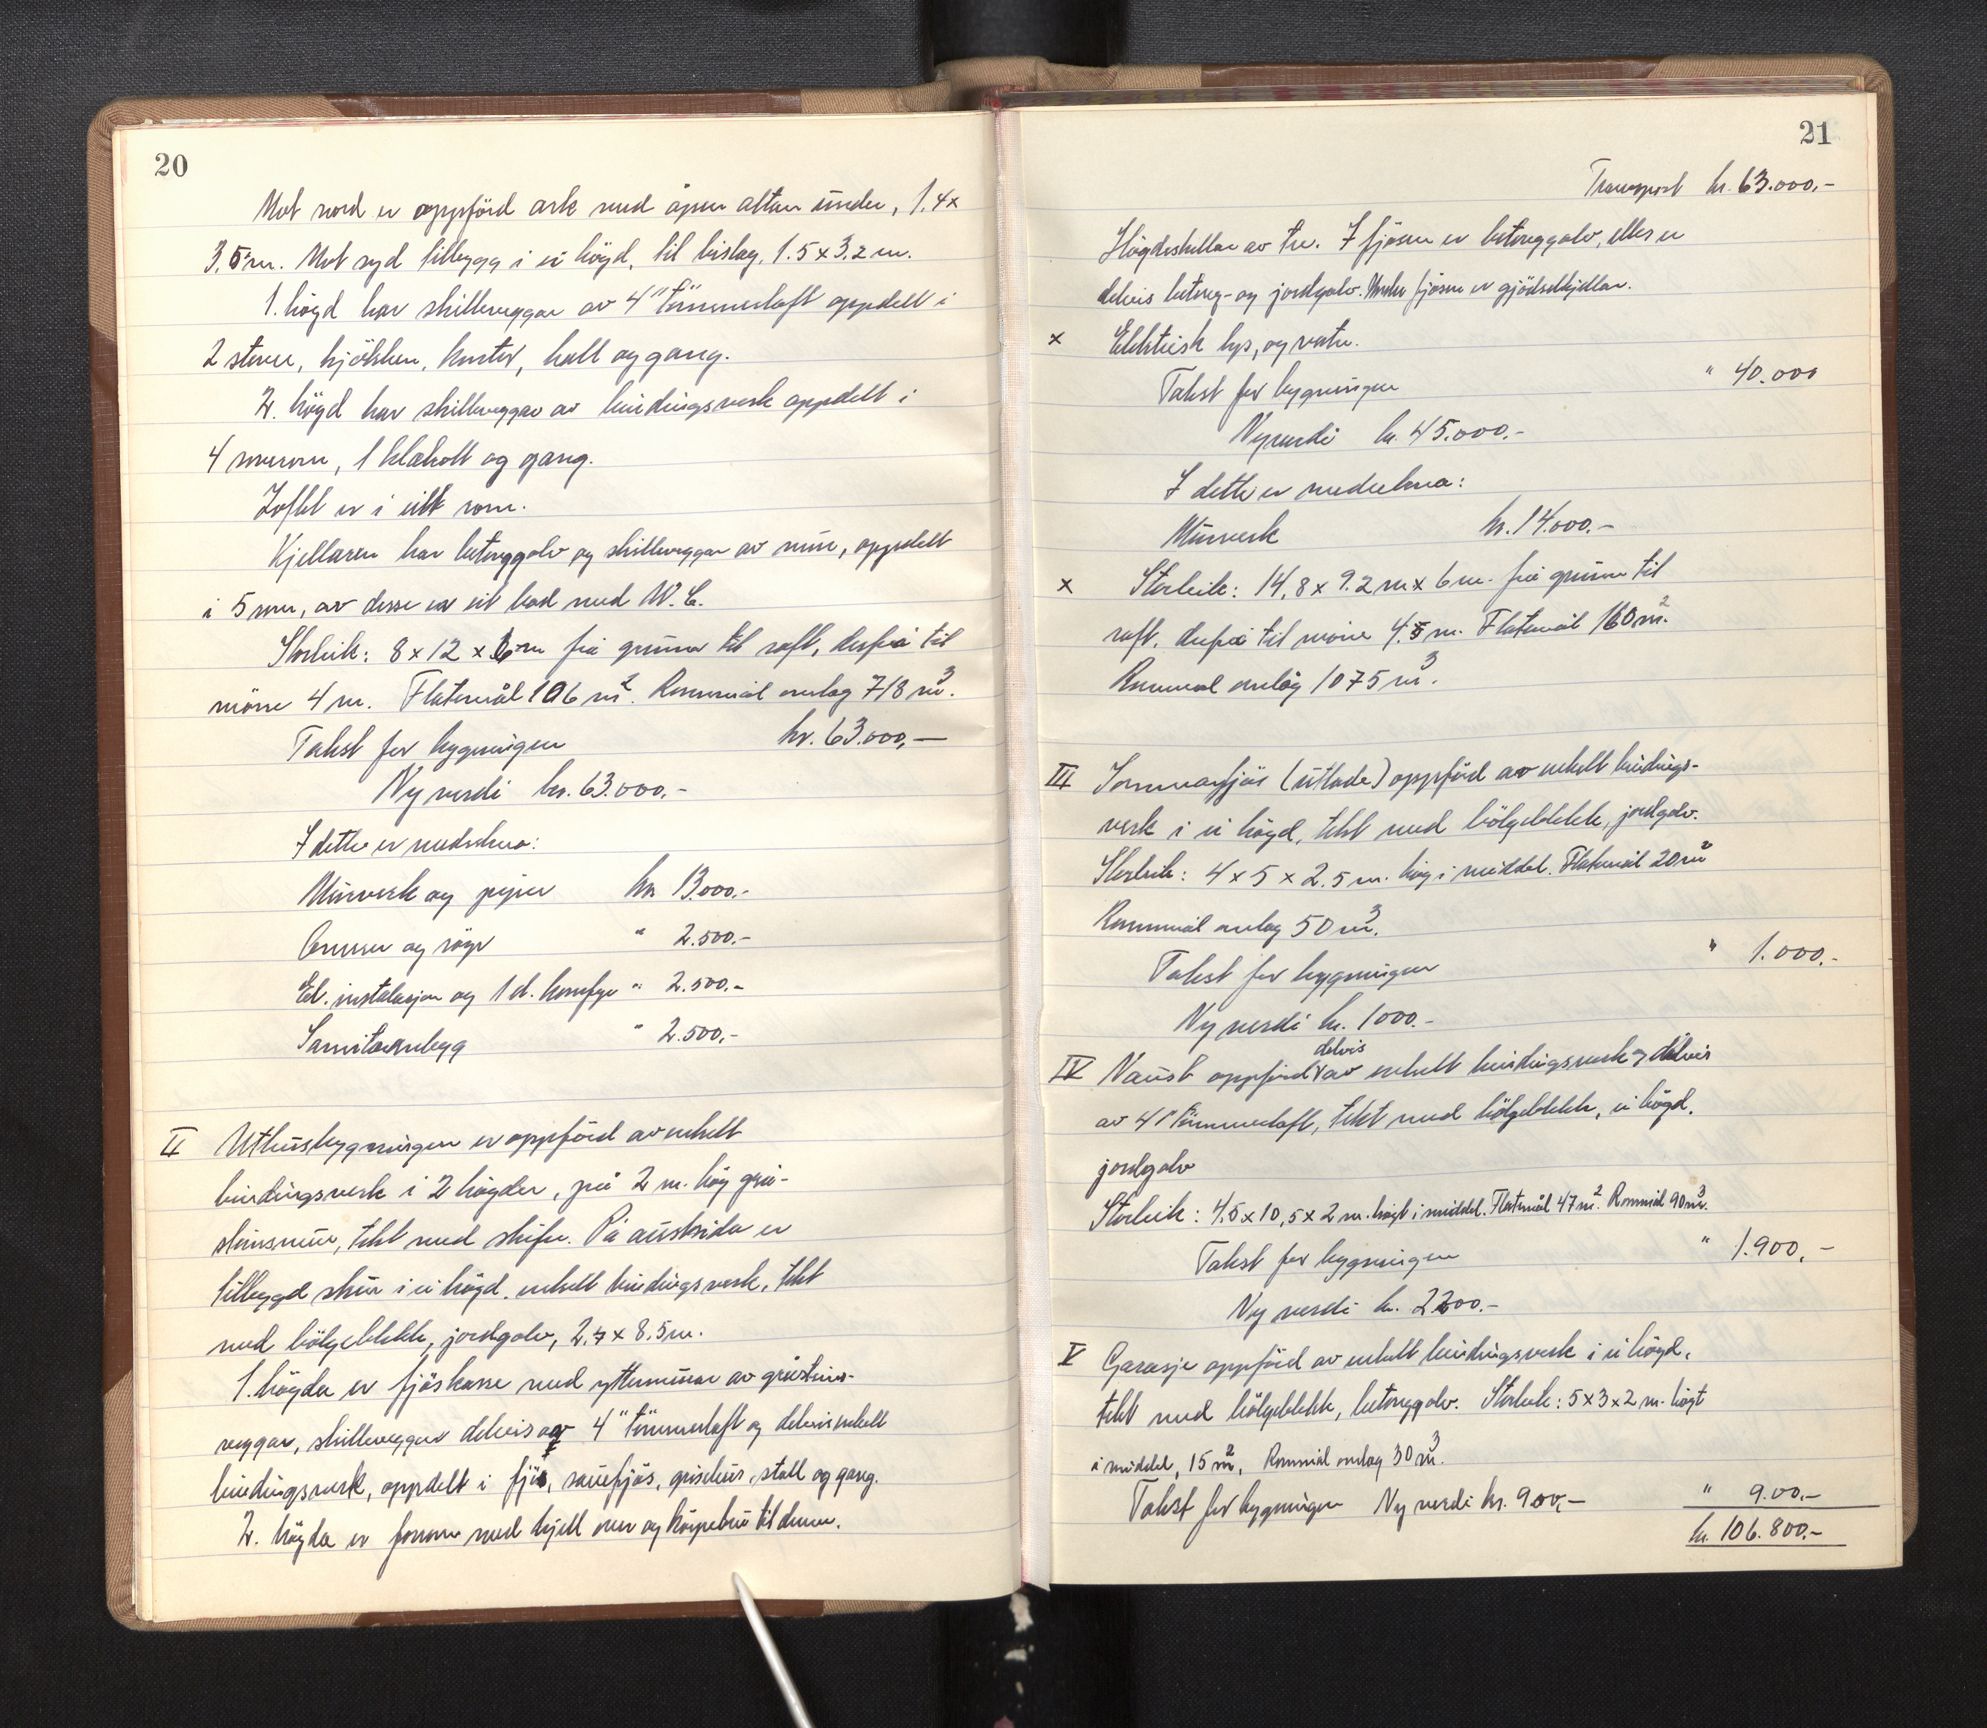 20
Mot nord er oppförd ark med åpen altan under, 1.4 x
3,5 m. Mot syd tilbygg i ei högd, til bislag, 1.5 x 3,2 m.
1. högd har skilleveggar av 4" tömmerlaft oppdelt i
2 stover, kjökken, kontor, hall og gang.
2. högd har skilleveggar av bindingsverk oppdelt i
4 soverom, 1 klækott og gang.
Loftet er i eitt rom.
Kjellaren har betonggolv og skilleveggar av mur, oppdelt
i 5 rom, av desse er eit bad med W.C.
Storleik: 8 x 12 x 6 m frå grunn til raft, derfrå til
möne 4 m. Flatemål 106 m². Rommål omlag 718 m³.
Takst for bygningen kr. 63.000,—
Ny verdi kr. 63.000,-
I dette er medrekna:
Murverk og piper kr 13.000.-
Omnar og rör " 2.500.-
El. instalasjon og 1 el. komfyr " 2.500.-
Sanitæranlegg " 2.500,-
II Uthusbygningen er oppförd av enkelt
bindingsverk i 2 högder, på 2 m. hög grå-
steinsmur, tekt med skifer. På austsida er
tilbygd skur i ei högd, enkelt bindingsverk, tekt
med bölgeblekk, jordgolv, 2,7 x 8.5 m.
1. högda er fjöskasse med yttermurar av gråsteins-
veggar, skilleveggar delvis av 4" tömmerlaft og delvis enkelt
bindingsverk, oppdelt i fjös, sauefjös, grisehus, stall og gang.
2. högda er forrom med hjell over og köyrebru til denne.
21
Transport kr. 63.000,-
Högdeskillar av tre. I fjösen er betonggolv, elles er
delvis betong- og jordgolv. Under fjösen er gjödselkjellar.
x Elektrisk lys, og vatn.
Takst for bygningen " 40.000
Nyverdi kr. 45.000.-
I dette er medrekna:
Murverk kr. 14.000.-
x Storleik: 14,8 x 9.2 m x 6 m. frå grunn til
raft, derfrå til möne 4.5 m. Flatemål 160 m².
Rommål omlag 1075 m³.
III Sommarfjös (utlade) oppförd av enkelt bindings-
verk i ei högd, tekt med bölgeblekk, jordgolv.
Storleik: 4 x 5 x 2.5 m. hög i middel. Flatemål 20 m²
Rommål omlag 50 m³.
Takst for bygningen " 1.000.-
Ny verdi kr. 1000.-
delvis
IV Naust oppförd v av enkelt bindingsverk og delvis
av 4" tömmerlaft, tekt med bölgeblekk, ei högd,
jordgolv
Storleik: 4,5 x 10,5 x 2 m. högt i middel. Flatemål 47 m². Rommål 90 m³.
Takst for bygningen " 1.900,-
Ny verdi kr. 2200.-
V Garasje oppförd av enkelt bindingsverk i ei högd,
tekt med bölgeblekk, betonggolv. Storleik: 5 x 3 x 2 m. högt
i middel, 15 m², Rommål omlag 30 m³.
Takst for bygningen Ny verdi kr. 900,- " 900,-
kr. 106.800.-